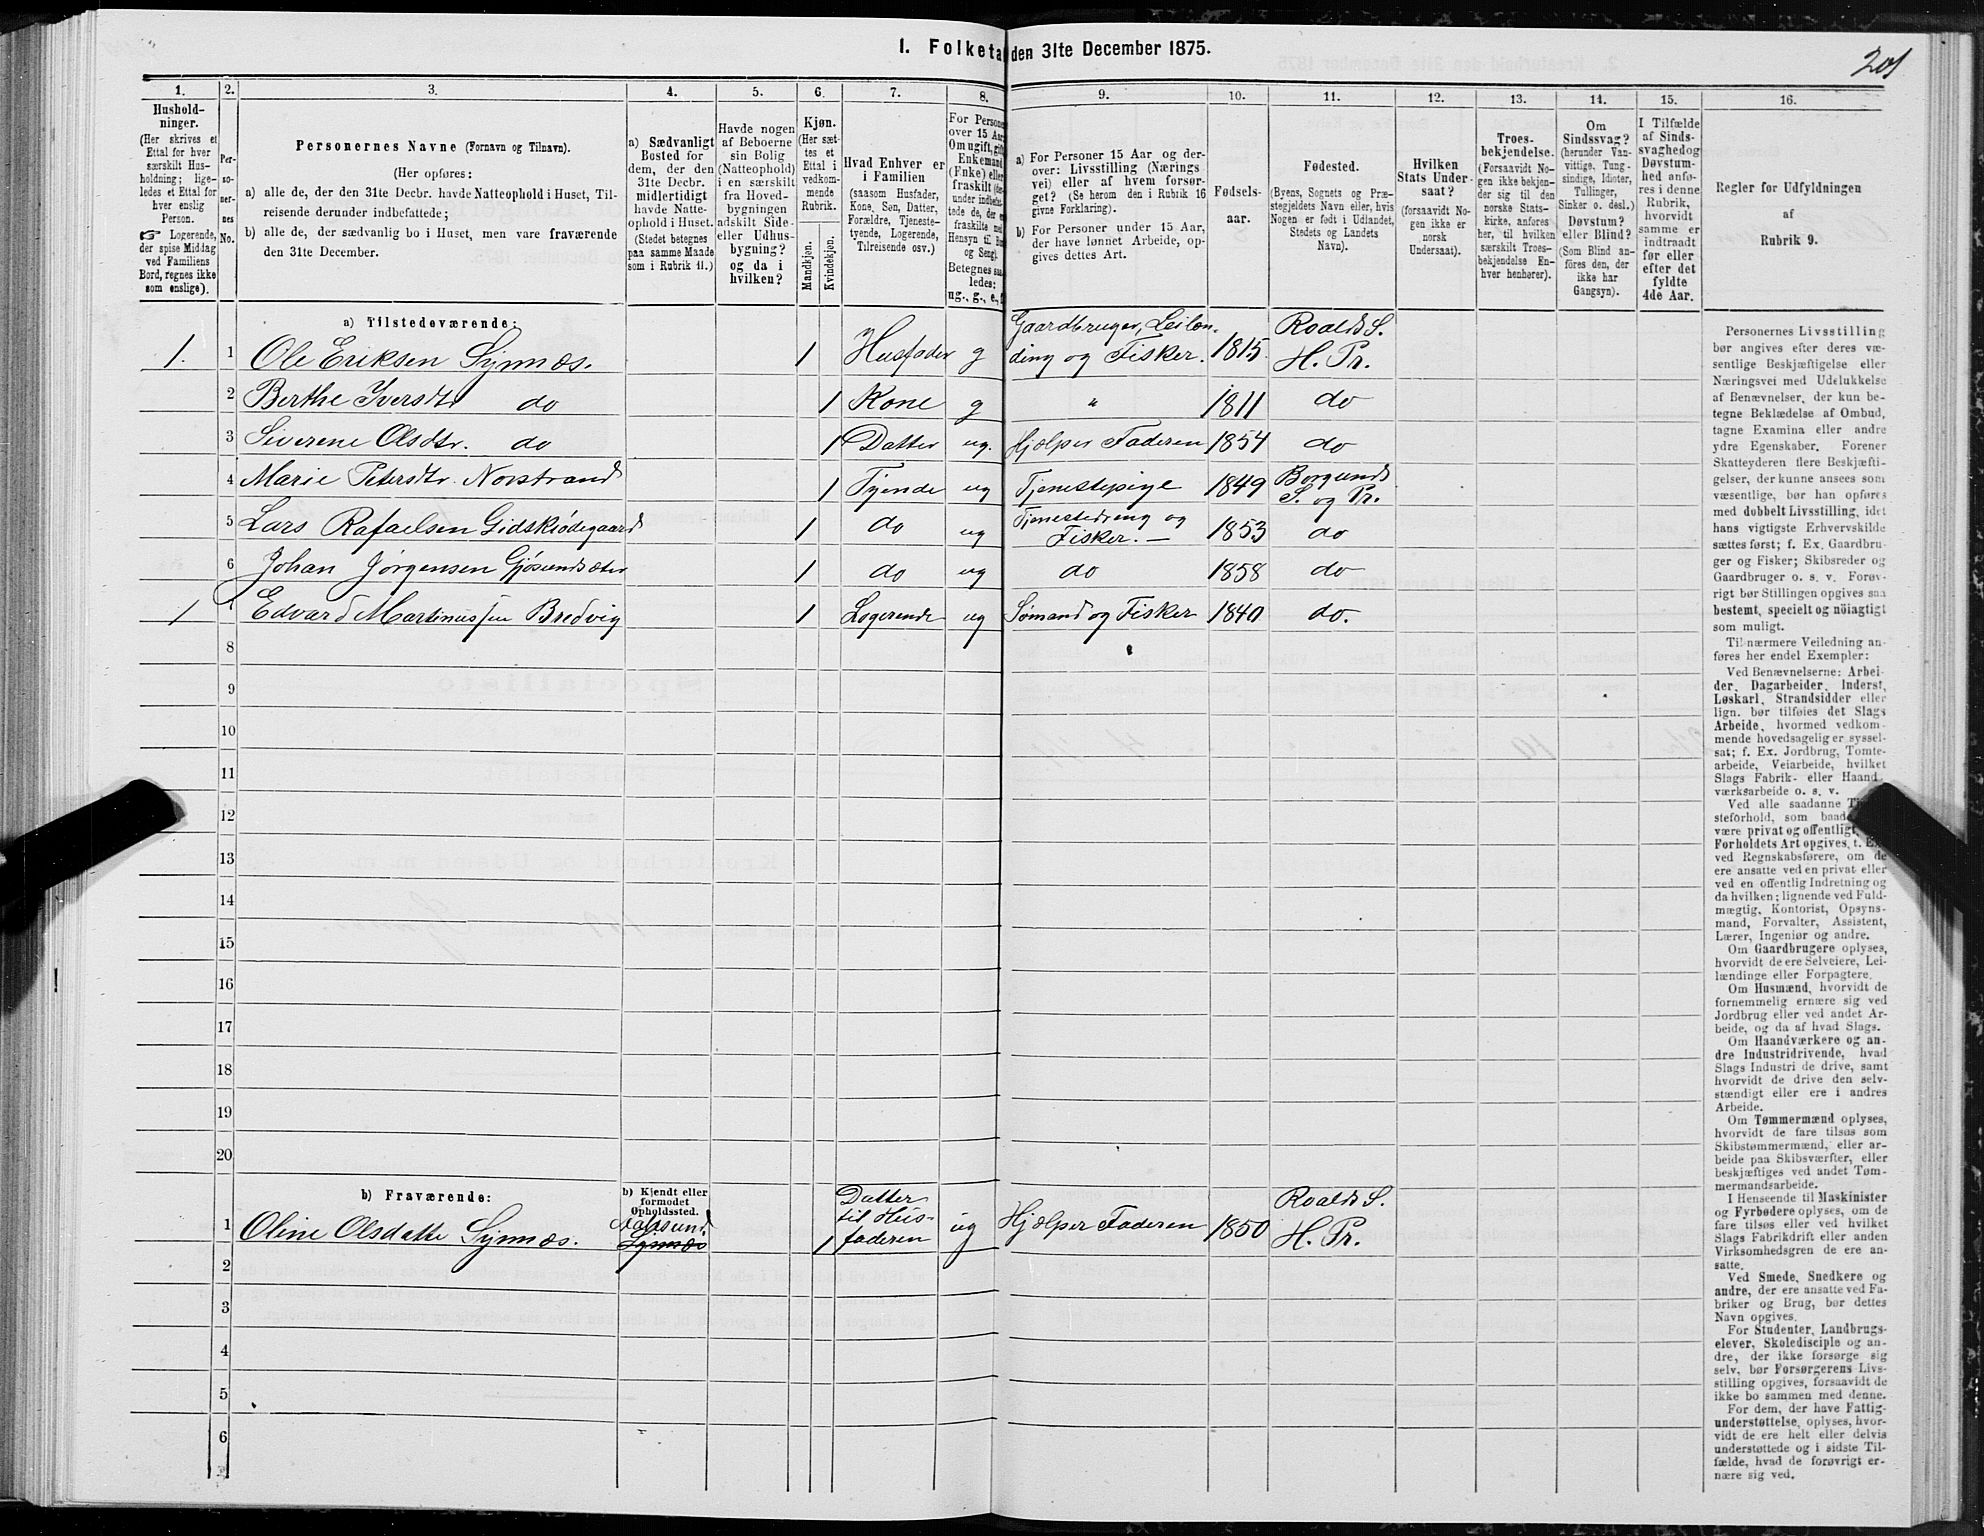 1. Folketa den 31te December 1875.
201
1.
Hushold-
ninger.
(Her skrives et
Ettal for hver
særskilt Hus-
holdning; lige-
ledes et Ettal for
hver enslig
Person.
☞ Logerende,
der spise Middag
ved Familiens
Bord, regnes ikke
som enslige).
2.
Per-
so-
ner-
nes
No.
3.
Personernes Navne (Fornavn og Tilnavn).
(Her opføres:
a) alle de, der den 31te Decbr. havde Natteophold i Huset, Til-
reisende derunder indbefattede;
b) alle de, der sædvanlig bo i Huset, men vare fraværende
den 31te December.
4.
a) Sædvanligt
Bosted for
dem, der den
31te Decbr.
midlertidigt
havde Natte-
ophold i Huset.
(Stedet betegnes
paa samme Maade
som i Rubrik 11.)
5.
Havde nogen
af Beboerne
sin Bolig
(Natteophold)
i en særskilt
fra Hoved-
bygningen
adskilt Side-
eller Udhus-
bygning?
og da i
hvilken?
6.
Kjøn.
(Her sæt-
tes et
Ettal i
vedkom-
mende
Rubrik.
Mandkjøn.
Kvindekjøn.
7.
Hvad Enhver er
i Familien
(saasom Husfader,
Kone, Søn, Datter,
Forældre, Tjeneste-
tyende, Logerende,
Tilreisende osv.)
8.
For Persone
over 15 Aar
Om ugift, gift
Enkemand
(Enke) eller
fraskilt
Betegnes saa
ledes:
ug., g., e.,
9.
a) For Personer 15 Aar og der-
over: Livsstilling (Nærings
vei) eller af hvem forsør-
get? (Se herom den i Rubrik 16
givne Forklaring).
b) For Personer under 15 Aar,
der have lønnet Arbeide, op-
gives dettes Art.
10.
Fødsels-
aar.
11.
Fødested.
(Byens, Sognets og Præ-
stegjeldets Navn eller, hvis
Nogen er født i Udlandet,
Stedets og Landets
Navn).
12.
Hvilken
Stats Under-
saat?
(forsaavidt No-
gen ikke er
norsk
Undersaat).
13.
Troes-
bekjendelse.
(Forsaavidt No-
gen ikke bekjen-
der sig til den
norske Stats-
kirke, anføres
her, til hvilken
særskilt Troes-
bekjendelse En-
hver henhører).
14.
Om
Sindssvag?
(herunder Van-
vittige, Tung-
sindige, Idioter,
Tullinger,
Sinker o. desl.)
Døvstum?
eller Blind?
(Som Blind an-
føres den, der
ikke har
Gangsyn).
15.
I Tilfælde
af Sinds-
svaghed og
Døvstum-
hed anfø-
res i denne
Rubrik,
hvorvidt
samme er
indtraadt
før eller
efter det
fyldte
4de Aar.
16.
Regler for Udfyldningen
af
Rubrik 9.
a) Tilstedeværende:
1. 1 Ole Eriksen Synnæs. 1 Husfader g Gaardbruger, Leilæn-
ding og Fisker. 1815. Roalds S.
H. Pr.
2 Berthe Iversdtr do 1 Kone g " 1811 do
3 Siverene Olsdtr. do 1 Datter ug. Hjælper Faderen 1854 do
4 Marie Petersdtr. Norstrand 1 Tyende ug Tjenestepige 1849 Borgunds
S. og Pr.
5 Lars Rafaelsen Gidskiødegaard 1 do ug Tjenestedreng og
Fisker. — 1853 do
6 Johan Jørgensen Gjøsundsæter 1 do ug do 1858 do
1 Edvard Martinussen Bredvig 1 Logerende ug Sømand og Fisker 1840 do.
8
9
10
11
12
13
14
15
16
17
18
19
20
b) Fraværende:
b) Kjendt eller
formodet
Opholdssted.
1 Oline Olsdatte Synnæs. Aalesund
Synnæs 1 Datter
til Hus-
faderen ug Hjælper Faderen 1850 Roalds S.
H. Pr.
2
3
4
5
6
Personernes Livsstilling
bør angives efter deres væ-
sentlige Beskjæftigelse eller
Næringsvei med Udelukkelse
af Benævnelser, der kun be-
tegne Beklædelse af Ombud,
tagne Examina eller andre
ydre Egenskaber. Forener
Skatteyderen flere Beskjæfti-
gelser, der kunne ansees som
væsentlige, bør han opføres
med dobbelt Livsstilling, idet
hans vigtigste Erhvervskilde
sættes først; f. Ex. Gaardbru-
ger og Fisker; Skibsreder og
Gaardbruger o. s. v. Forøv-
rigt bør Stillingen opgives saa
bestemt, specielt og nöiagtigt
som muligt.
Til nærmere Veiledning an-
føres her endel Exempler:
Ved Benævnelserne: Arbei-
der, Dagarbeider, Inderst,
Løskarl, Strandsidder eller
lign. bør tilføies det Slags
Arbeide, hvormed vedkom-
mende hovedsagelig er syssel-
sat; f. Ex. Jordbrug, Tomte-
arbeide, Veiarbeide, hvilket
Slags Fabrik- eller Haand-
værksarbeide o. s. v.
Ved alle saadanne
steforhold, som baade
være privat og offentligt,
Forholdets Art opgives, t. Ex.
ved Regnskabsførere, om de
ere ansatte ved en privat eller
ved en offentlig Indretning og
da hvilken; lignende ved Fuld-
mægtig, Kontorist, Opsyns-
mand, Forvalter, Assistent,
Lærer, Ingeniør og andre.
Om Gaardbrugere oplyses,
hvorvidt de ere Selveiere, Lei-
lændinge eller Forpagtere.
Om Husmænd, hvorvidt de
fornemmelig ernære sig ved
Jordbrug eller ved andet Ar-
beide, og da af hvad Slags.
Om Haandværkere og an-
dre Industridrivende, hvad
Slags Industri de drive, samt
hvorvidt de drive den selv-
stændigt eller ere i andres
Arbeide.
Om Tømmermænd oplyses,
hvorvidt de fare tilsøs som
Skibstømmermænd, eller ar-
beide paa Skibsværfter, eller
beskjæftiges ved andet Tøm-
mermandsarbeide.
I Henseende til Maskinister
og Fyrbødere oplyses, om de
fare tilsøs eller ved hvilket
Slags Fabrikdrift eller anden
Virksomhedsgren de ere an-
satte.
Ved Smede, Snedkere og
andre, der ere ansatte ved Fa-
briker og Brug, bør dettes
Navn opgives.
For Studenter, Landbrugs-
elever, Skoledisciple og an-
dre, der ikke forsørge sig
selv, bør Forsørgerens Livs-
stilling opgives, forsaavidt de
ikke bo sammen med denne.
For dem, der have Fattig-
understøttelse, oplyses, hvor-
vidt de ere helt eller delvis
understøttede og i sidste Til-
fælde, hvad de forøvrigt er-
nære sig ved.